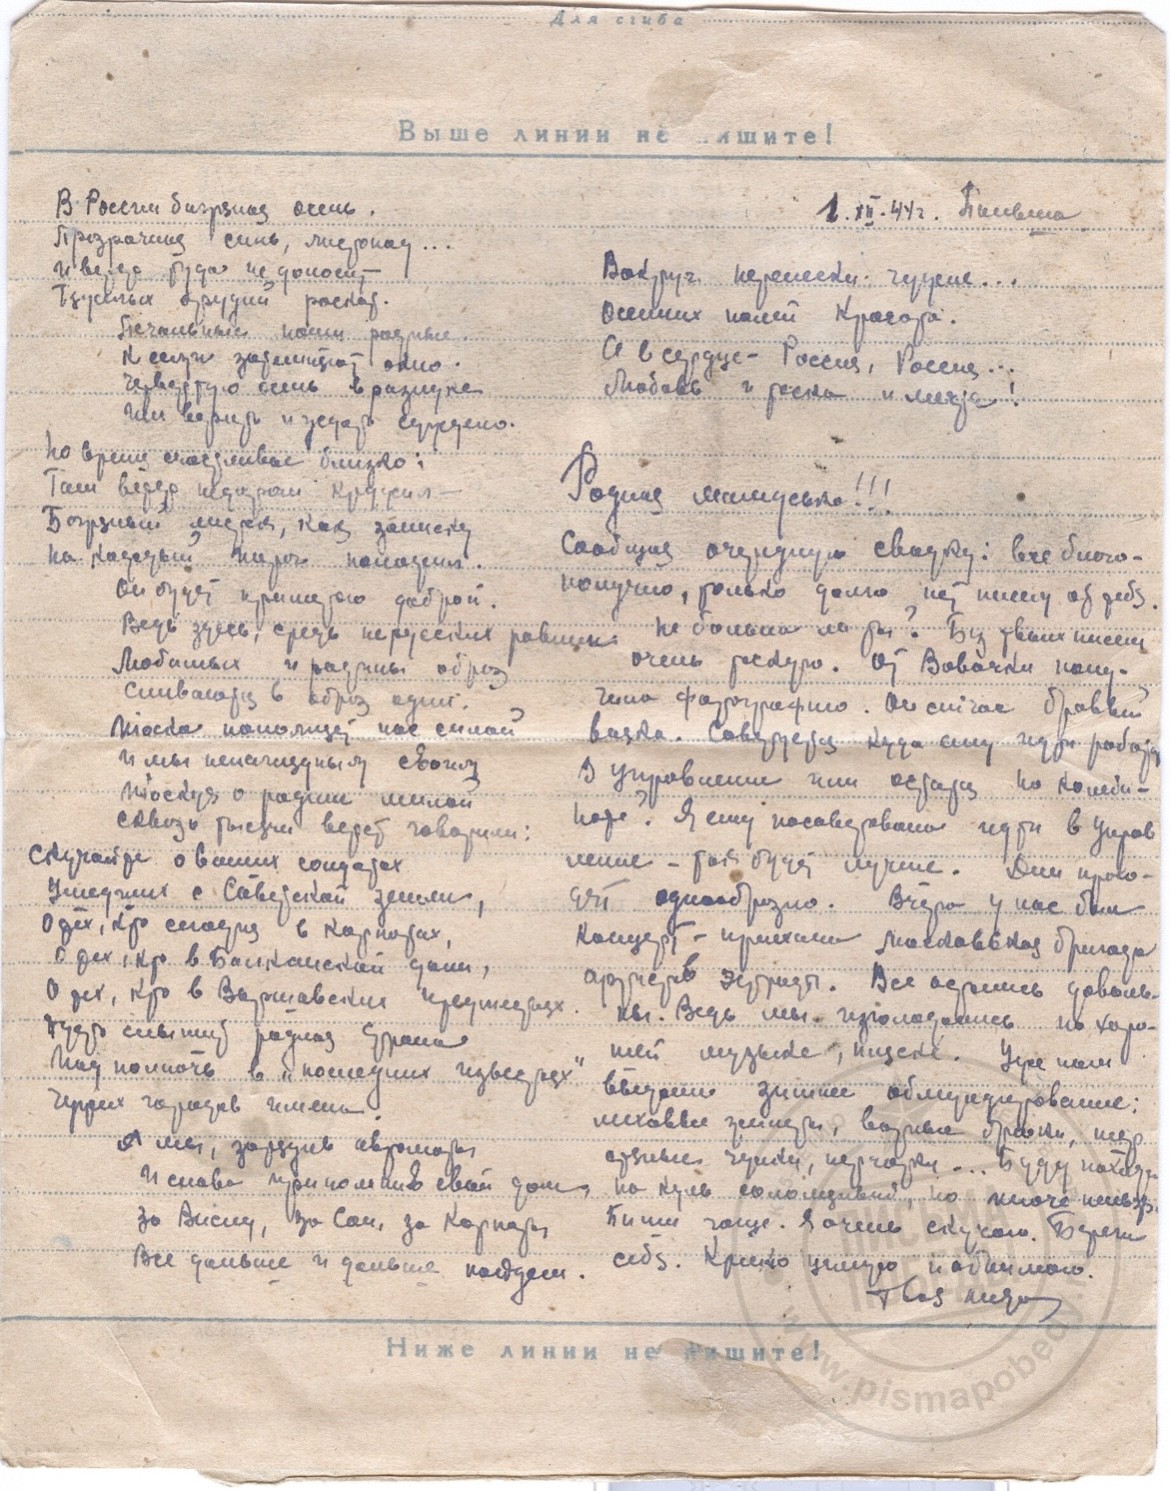 Для сгиба
Выше линии не пишите!
В России багряная осень.
Прозрачная синь, листопад...
И ветер туда не доносит
Тяжёлых орудий раскат.
Печальные наши родные.
К селу заметает окно.
Четвёртую осень в разлуке
Им верить и ждать суждено.
Но время счастливое близко:
Там ветер недаром кружил –
Багряный листок, как записку
На каждый порог положил.
Он будет приметою доброй.
Ведь здесь, средь нерусских равнин
Любимых и родины образ
Сливаются в образ один.
Москва наполняет нас силой
И мы ненаглядным своим
Тоскуя о родине милой
Сквозь тысячи вёрст говорим:
Скучайте о ваших солдатах
Ушедших с Советской земли,
О тех, кто сегодня в Карпатах,
О тех, кто в Балканской дали,
О тех, кто в Варшавских предместьях.
Пусть слышит родная страна
Под полночь в "последних известьях"
Чужих городов имена.
А мы, зарядив автоматы
И снова припомнив свой дом,
За Вислу, за Сан, за Карпаты
Все дальше и дальше пойдем.
1.XII.44г. Польша
Вокруг перелески чужие...
Осенних полей красота.
А в сердце – Россия, Россия...
Любовь и тоска и мечта!
Родная мамуська!!!
Сообщаю очередную сводку: все благо-
получно, только долго нет писем от тебя.
Не больна ли ты? Без твоих писем
очень тоскую. От Вовочки полу-
чила фотографию. Он сейчас бравый
вояка. Советуется куда ему идти работать
в управление или остаться на
? Я ему посоветовала идти в управ
ление – там будет лучше. Дни прохо-
дят однообразно. Вчера у нас был
концерт – приехали Московская бригада
артистов эстрады. Все остались доволь-
ны. Ведь мы изголодались по хоро-
шей музыке, пляске. Уже нам
выдали зимнее обмундирование:
меховые жилеты, ватные брюки, шер
стяные чулки, перчатки... Буду походить
на куль соломенный, но иначе нельзя.
Пиши чаще. Я очень скучаю. Береги
себя. Крепко целую и обнимаю.
Твоя
Ниже линии не пишите!
www.pismapobed